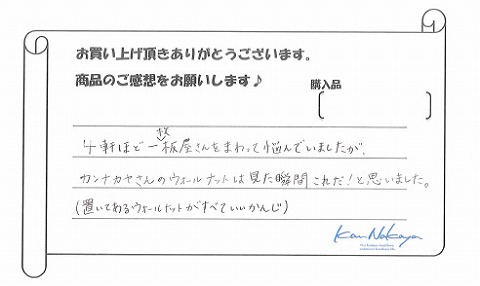 お買い上げ頂きありがとうございます。
商品のご感想をお願いします♪
購入品
4軒ほど一枚板屋さんをまわって悩んでいましたが、
カンナカヤさんのウォールナットは見た瞬間これだ!と思いました。
(置いてあるウォールナットがすべていいかんじ)
Kan Nakaya